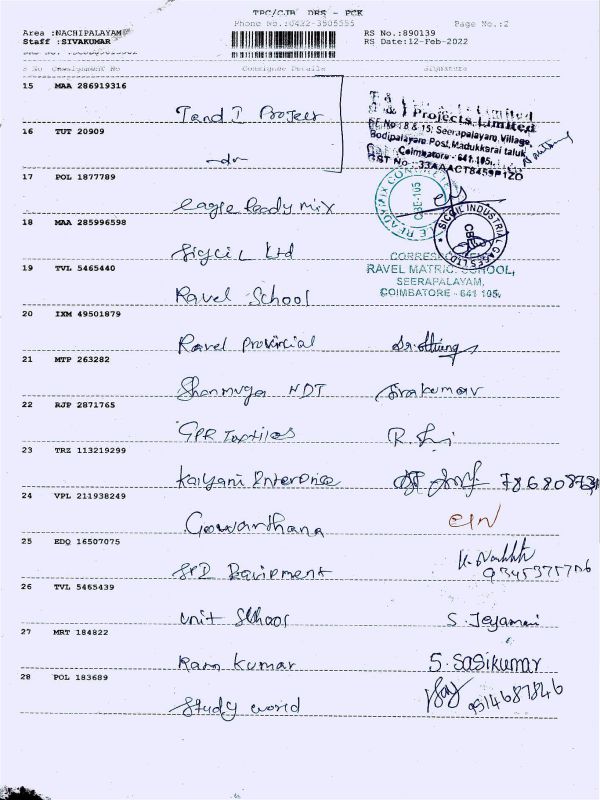 TPC/CJB DRS - PCK
Phone No.:0432-3505555 Page No.:2
Area :NACHIPALAYAM RS No.:890139
Staff :SIVAKUMAR RS Date:12-Feb-2022
S No Consignment No Consignee Details Signature
15 MAA 286919316
T and I Project
T & I Projects Limited
SF No : 8 & 15, Seerapalayam Village,
Bodipalayam Post, Madukkarai taluk,
Coimbatore - 641 105.
GST No : 33AAACT8459P1ZO
16 TUT 20909
-do-
17 POL 1877789
eagle Ready mix
CBE-105
18 MAA 285996598
Sigcil Ltd
SICGIL INDUSTRIAL GASES LTD
19 TVL 5465440
Ravel School
RAVEL MATRIC. SCHOOL,
SEERAPALAYAM,
COIMBATORE - 641 105.
20 IXM 49501879
Ravel Provincial
21 MTP 263282
Shanmuga NDT Sivakumar
22 RJP 2871765
GPR Textiles
23 TRZ 113219299
Kalyani Enterprise
24 VPL 211938249
Gowarthana
25 EDQ 16507075
26 TVL 5465439
Unit School S. Jeyamani
27 MRT 184822
Ram Kumar S. Sasikumar
28 POL 183689
Study world 9514687846